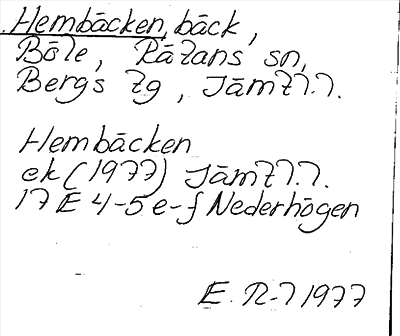 Hembäcken, bäck,
Böle, Rätans sn,
Bergs tg, Jämtl.
Hembäcken
ek (1977) Jämtl.
17 E 4-5 e-f Nederhögen
E. R-l 1977